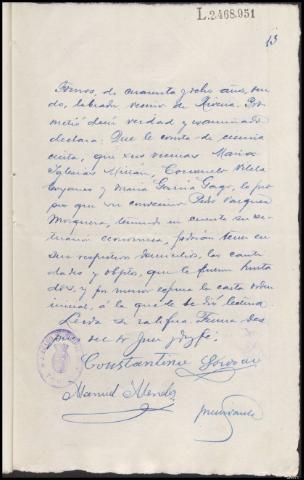 L.2468.951
13
Torres, de cuarenta y ocho años, viu-
do, labrador vecino de Riveira. Pro-
metió decir verdad y examinado
declara: Que le consta de ciencia
cierta, que sus vecinas María
Iglesias Millan, Consuelo Vilela
y María García Gago, lo pro-
pio que su convecino Pedro Vazquez
Mosquera, teniendo en cuenta su si-
tuacion economica, podrian tener en
sus respectivos domicilios, las canti-
dades y objetos, que le fueron hurta-
dos, y por menor expresa la carta orden
inicial, á la que le se dió lectura
Leida se ratifica. Firma des-
pues del Sr Juez doy fe.
Constantino
Manuel Mendez